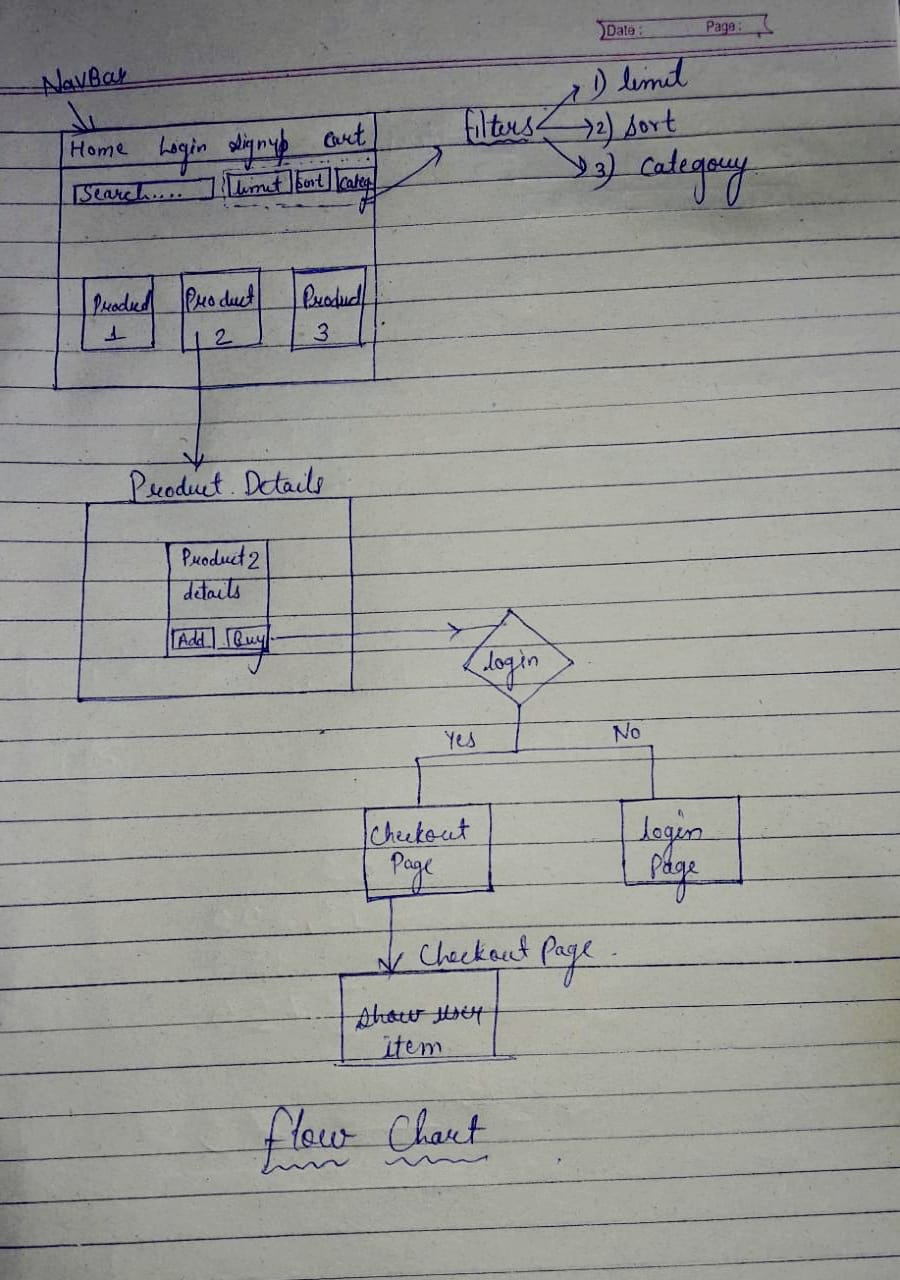 Date: Page:
NavBar
Home Login Signup Cart
Search.... limit sort categ
filters
1) limit
2) sort
3) category
Product 1
Product 2
Product 3
Product Details
Product 2
details
Add Buy
login
Yes No
Checkout
Page
login
Page
Checkout Page.
show user
item
flow Chart